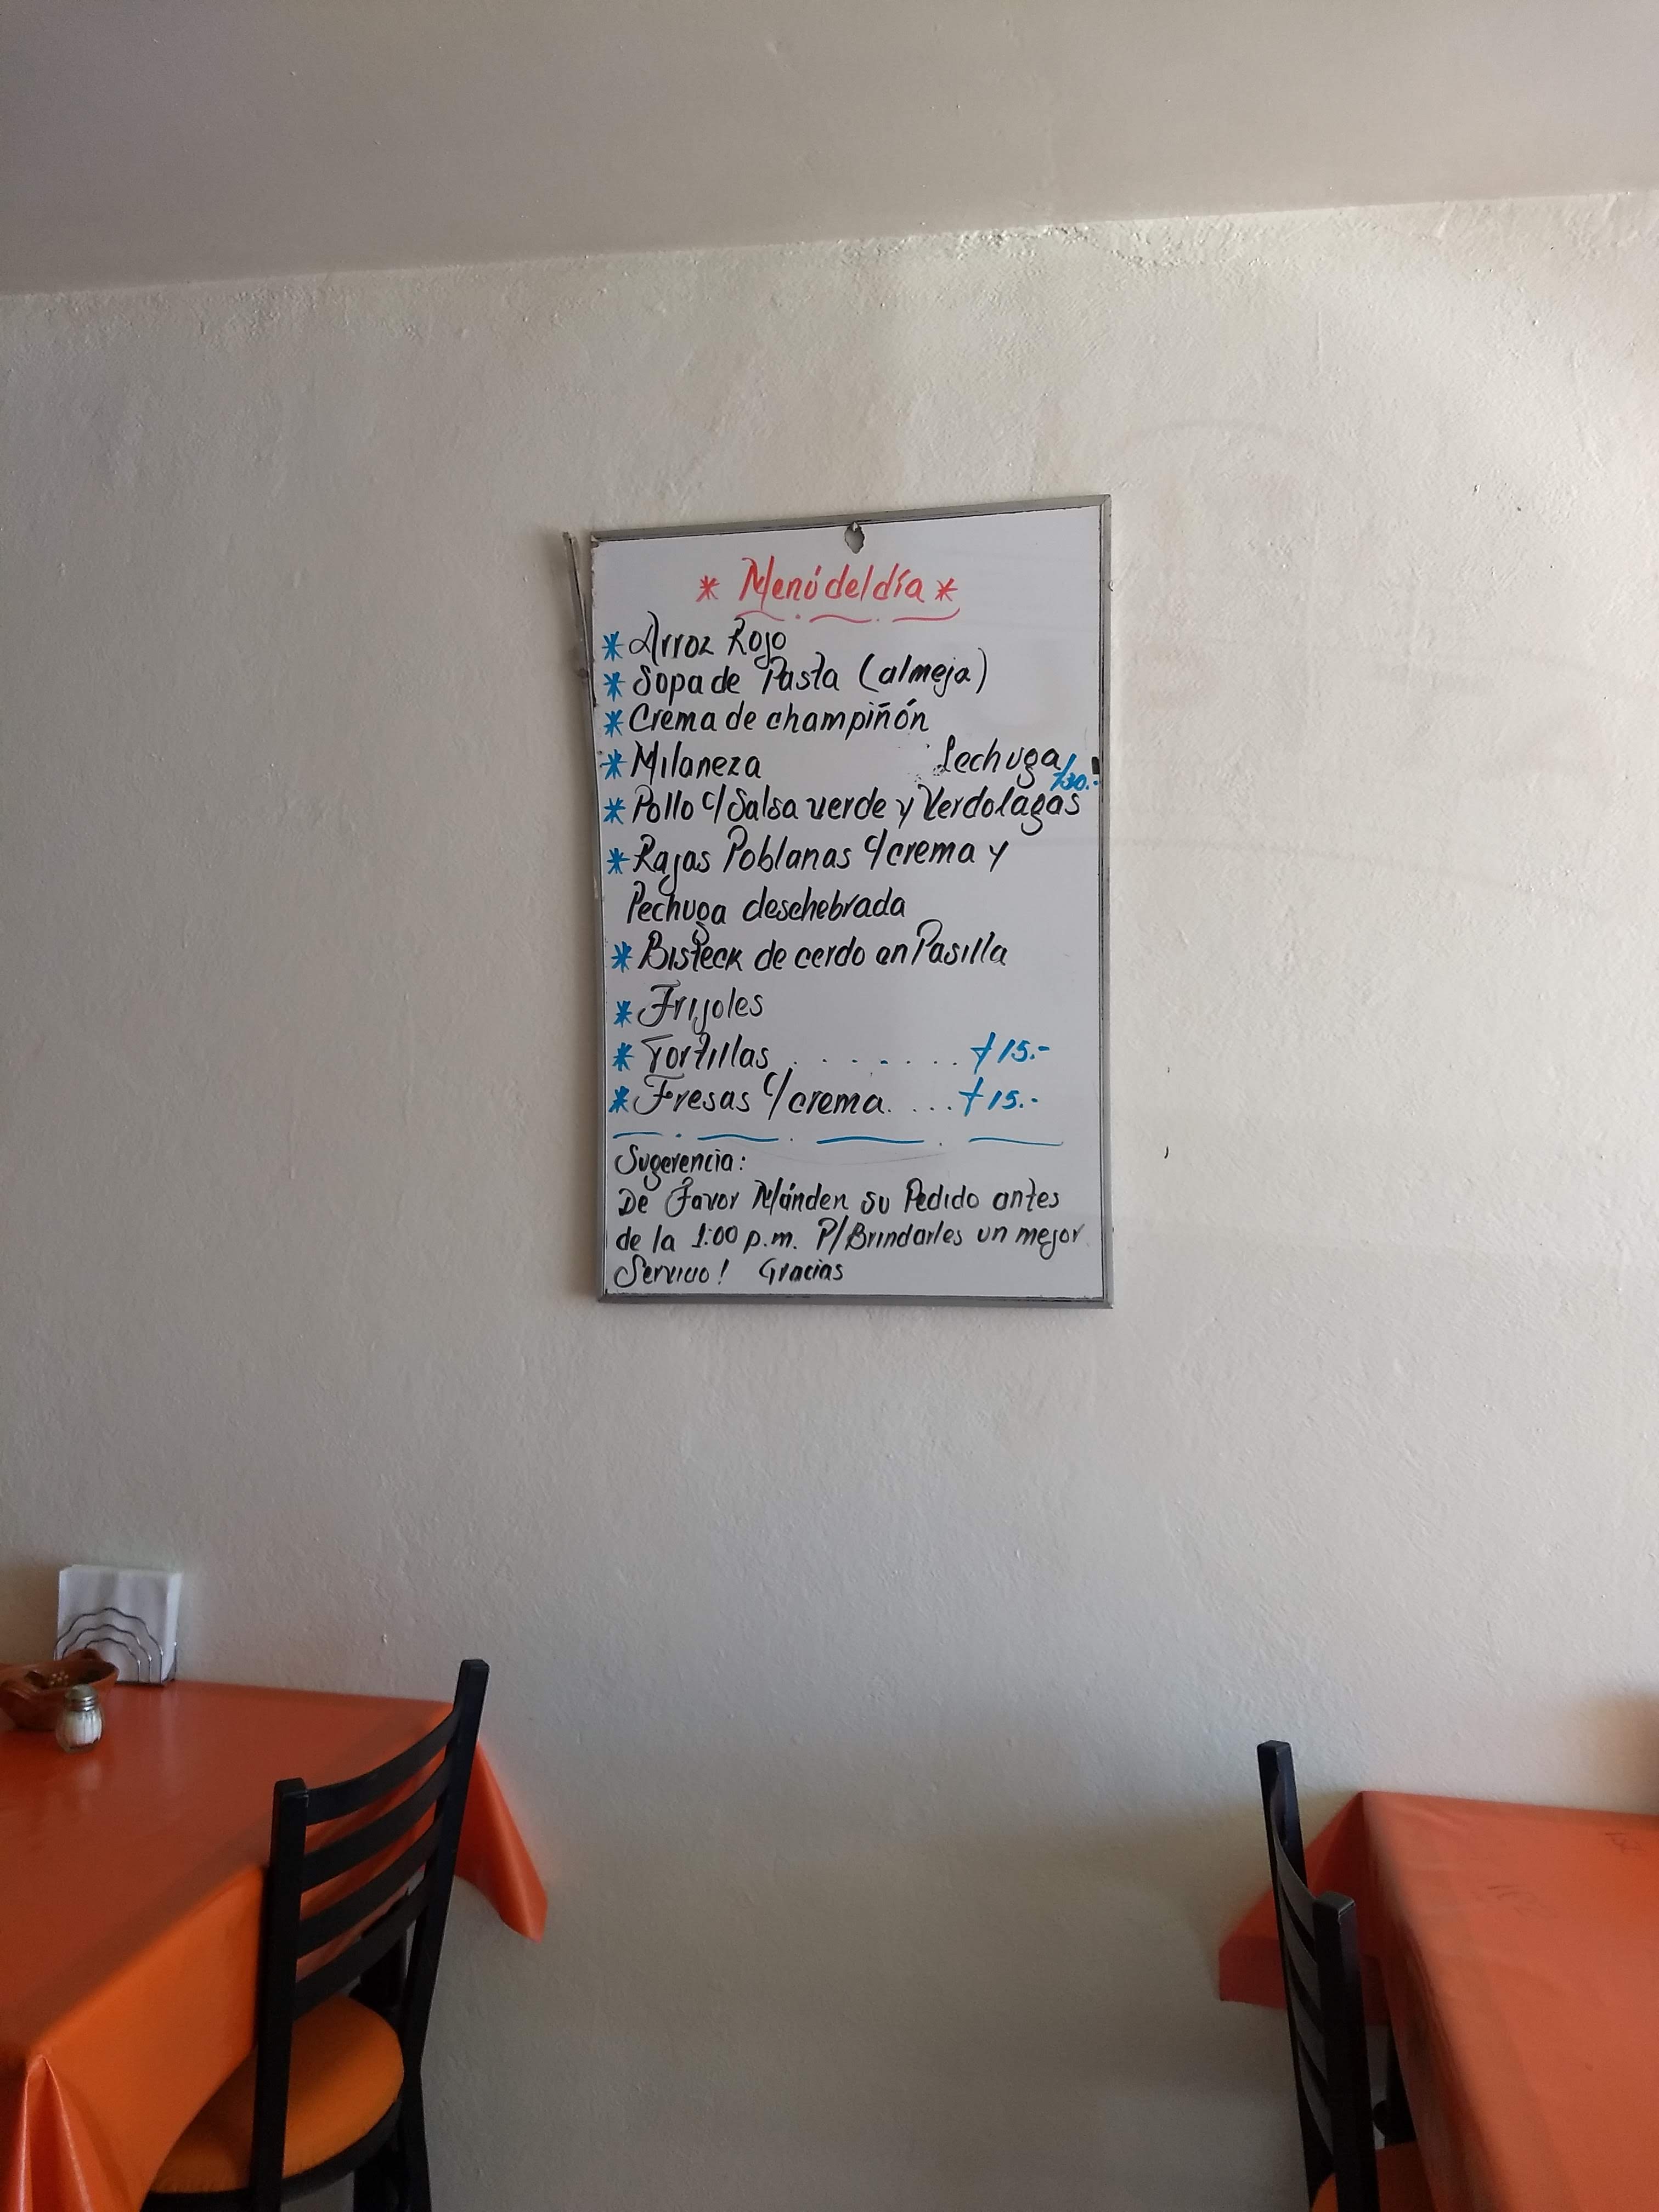 * Menú del día *
* Arroz Rojo
* Sopa de Pasta (almeja)
* Crema de champiñón
* Milaneza Lechuga
* Pollo c/Salsa verde y Verdolagas
* Rajas Poblanas c/crema y
Pechuga deschebrada
* Bisteck de cerdo en Pasilla
* Frijoles
* Tortillas . . . . . . . $15.-
* Fresas c/crema. ... $15.-
Sugerencia:
De Favor Mánden su Pedido antes
de la 1:00 p.m. P/Brindarles un mejor
Servicio! Gracias